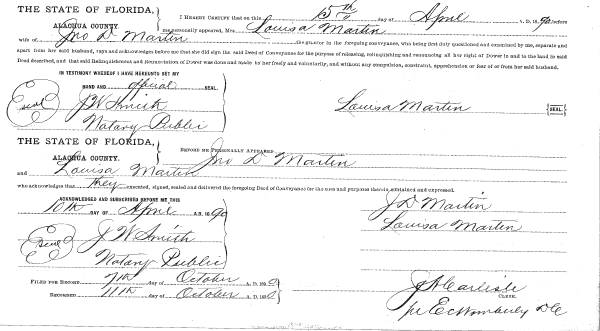 THE STATE OF FLORIDA, I HEREBY CERTIFY that on this 15th day of April A. D. 1890 before
ALACHUA COUNTY. me personally appeared, Mrs. Louisa Martin
wife of Jno D. Martin the grantor in the foregoing conveyance, who being first duly questioned and examined by me, separate and
apart from her said husband, says and acknowledges before me that she did sign the said Deed of Conveyance for the purpose of releasing, relinquishing and renouncing all her right of Dower in and to the land in said
Deed described, and that said Relinquishment and Renunciation of Dower was done and made to be freely and voluntarily, and without any compulsion, constraint, apprehension or fear of or from her said husband.
IN TESTIMONY WHEREOF I HAVE HEREUNTO SET MY
HAND AND official SEAL.
Seal J. W. Smith Louisa Martin {SEAL.}
Notary Public
THE STATE OF FLORIDA,
ALACHUA COUNTY. BEFORE ME PERSONALLY APPEARED Jno D. Martin
and Louisa Martin
who acknowledges that they executed, signed, sealed and delivered the foregoing Deed of Conveyance for the uses and purposes therein contained and expressed.
ACKNOWLEDGED AND SUBSCRIBED BEFORE ME THIS
10th DAY OF April A. D. 1890 J. D. Martin
Seal J W Smith Louisa Martin
Notary Public
FILED FOR RECORD 7th day of October A. D. 1890 J A Carlisle
RECORDED 11th day of October A. D. 1890 CLERK.
per E C Wimberly D C